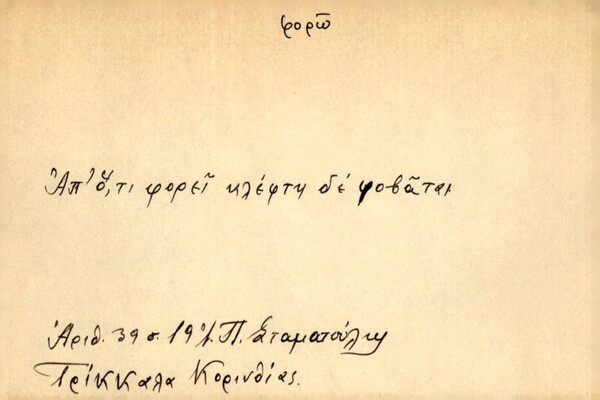 φορῶ
Ἀπ' ὅ,τι φορεῖ κλέφτη δέ φοβᾶται
Ἀριθ. 39 σ. 19 Π. Σταματούλη
Τρίκκαλα Κορινθίας.